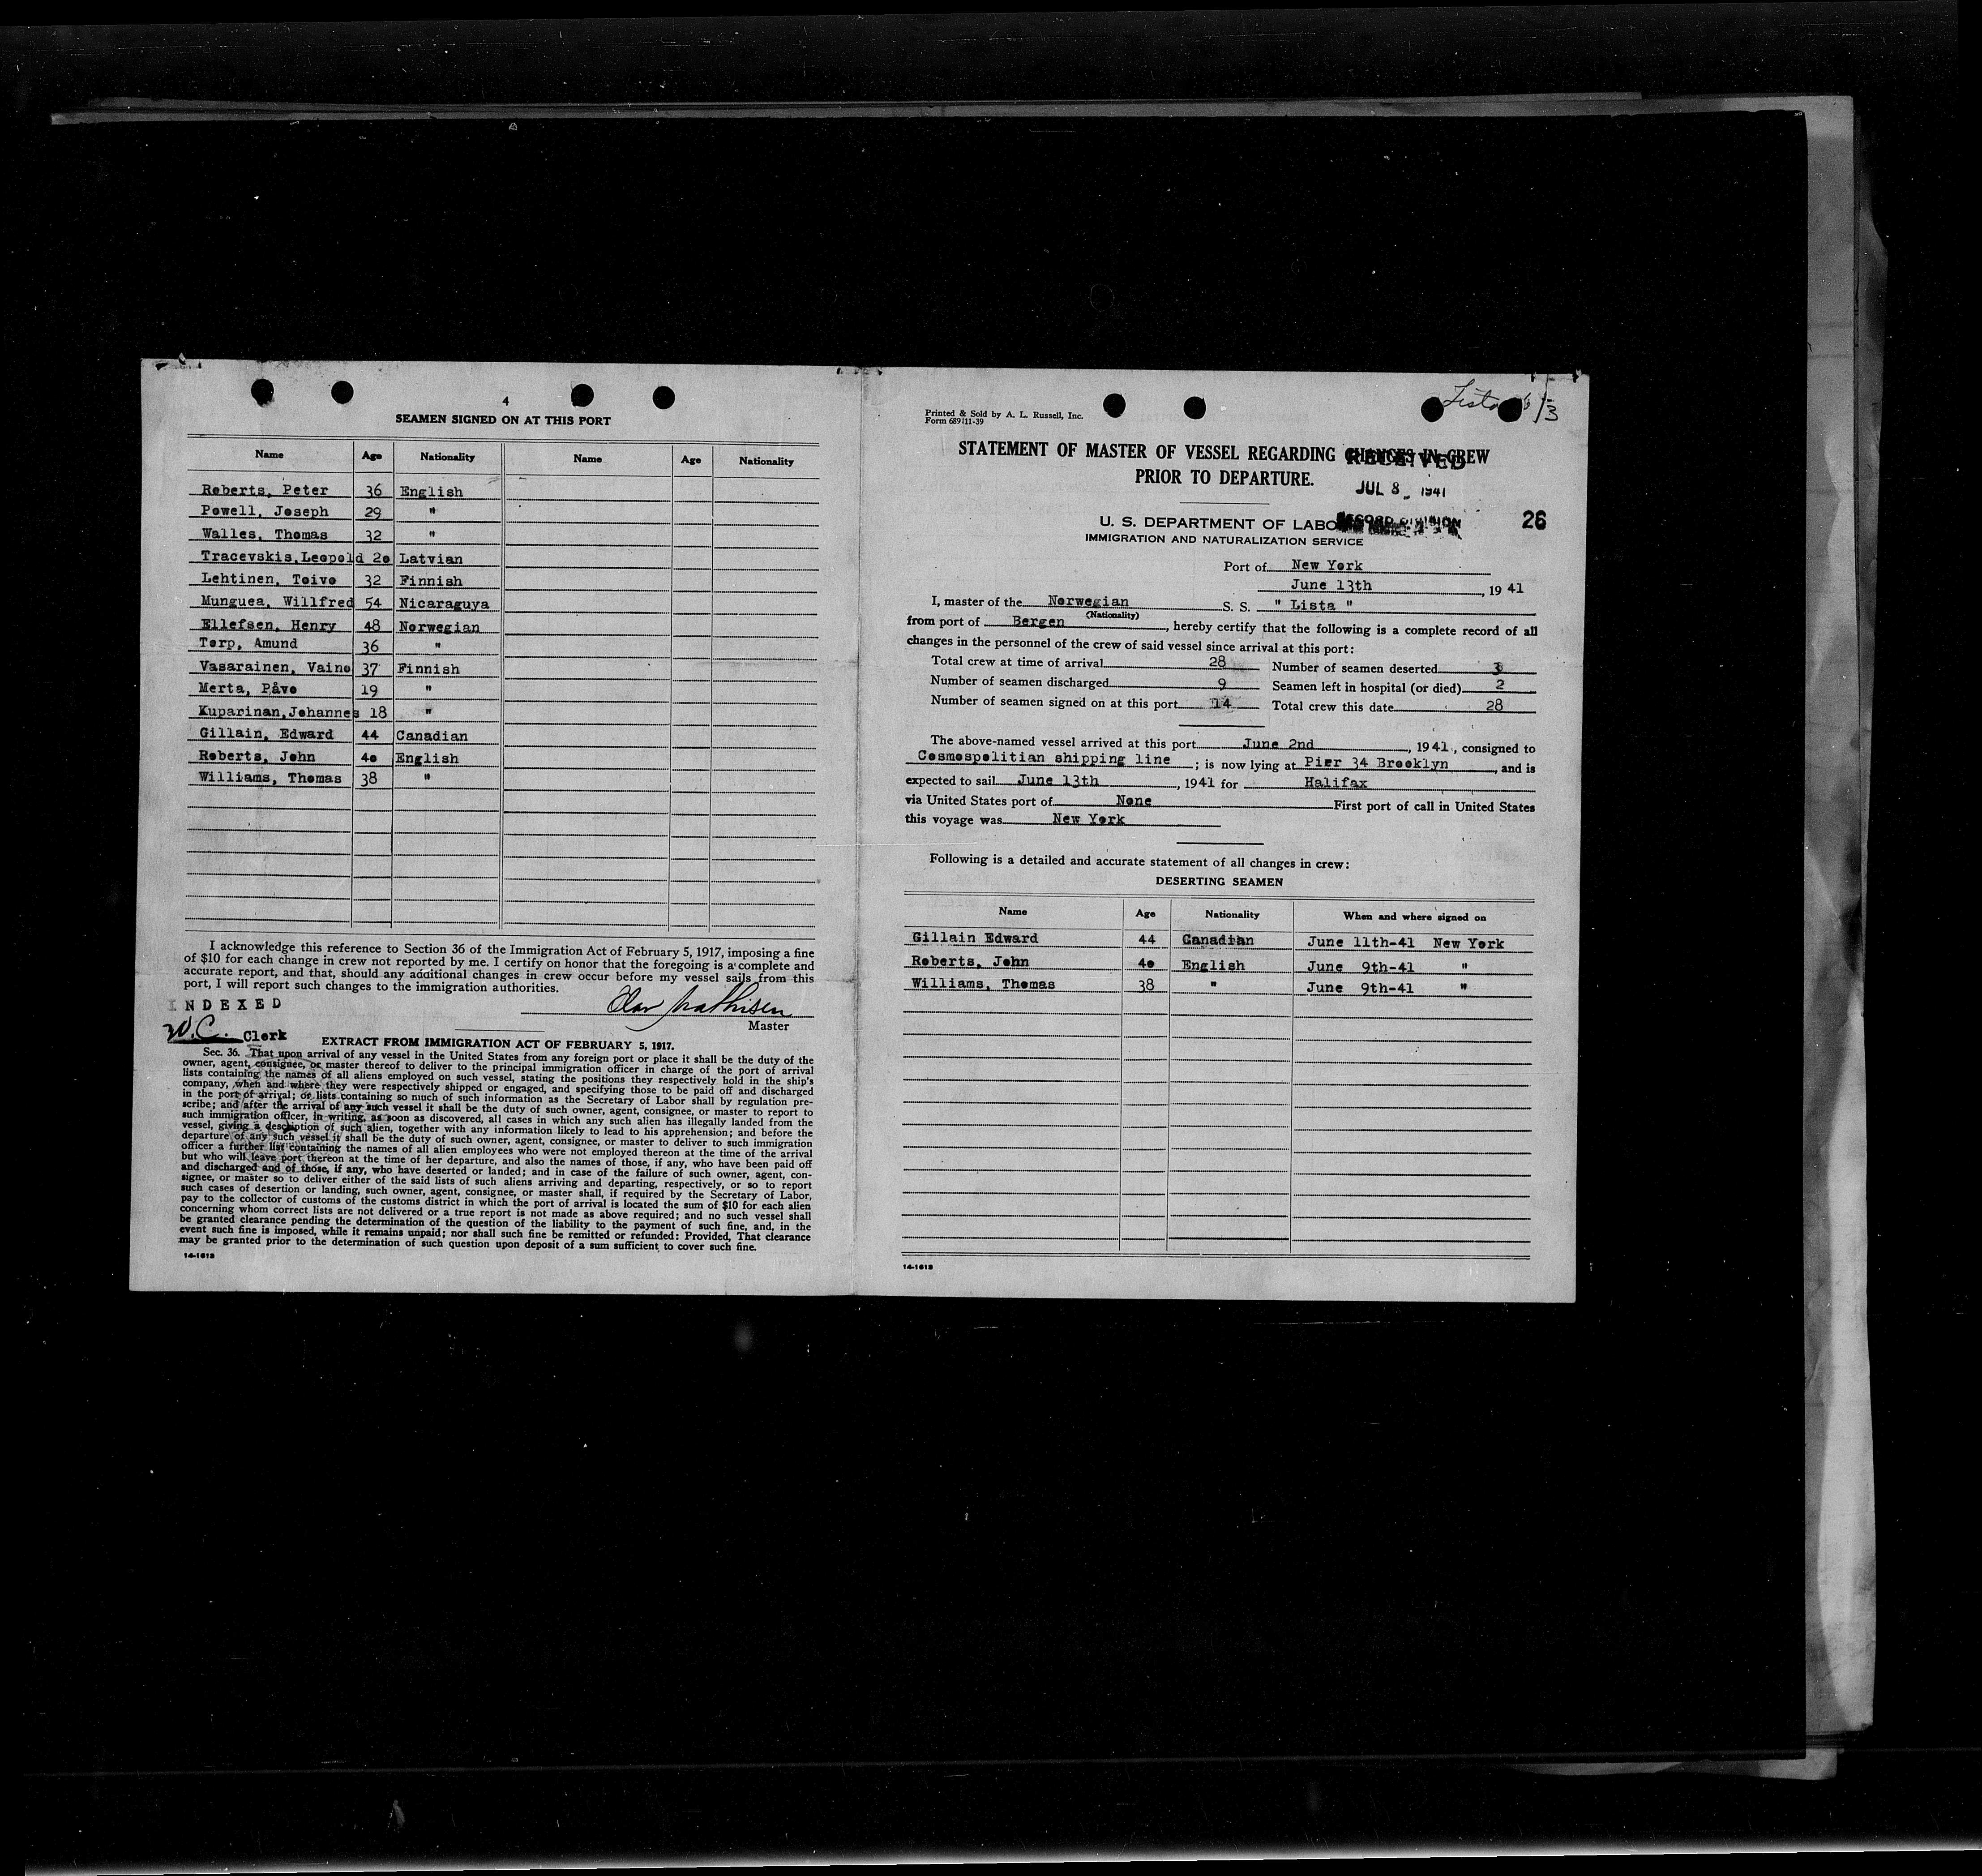 4
SEAMEN SIGNED ON AT THIS PORT
Name Age Nationality Name Age Nationality
Roberts, Peter 36 English
Powell, Joseph 29 "
Walles, Thomas 32 "
Tracevskis,Leopold 20 Latvian
Lehtinen, Toivo 32 Finnish
Munguea, Willfred 54 Nicaraguya
Ellefsen, Henry 48 Norwegian
Torp, Amund 36 "
Vasarainen, Vaino 37 Finnish
Merta, Påvo 19 "
Kuparinan,Johannes 18 "
Gillain, Edward 44 Canadian
Roberts, John 40 English
Williams, Thomas 38 "
I acknowledge this reference to Section 36 of the Immigration Act of February 5, 1917, imposing a fine
of $10 for each change in crew not reported by me. I certify on honor that the foregoing is a complete and
accurate report, and that, should any additional changes in crew occur before my vessel sails from this
port, I will report such changes to the immigration authorities.
INDEXED
Olav Mathisen
Master
W.C. Clerk
EXTRACT FROM IMMIGRATION ACT OF FEBRUARY 5, 1917.
Sec. 36. That upon arrival of any vessel in the United States from any foreign port or place it shall be the duty of the
owner, agent, consignee, or master thereof to deliver to the principal immigration officer in charge of the port of arrival
lists containing the names of all aliens employed on such vessel, stating the positions they respectively hold in the ship's
company, when and where they were respectively shipped or engaged, and specifying those to be paid off and discharged
in the port of arrival; or lists containing so much of such information as the Secretary of Labor shall by regulation pre-
scribe; and after the arrival of any such vessel it shall be the duty of such owner, agent, consignee, or master to report to
such immigration officer, in writing, as soon as discovered, all cases in which any such alien has illegally landed from the
vessel, giving a description of such alien, together with any information likely to lead to his apprehension; and before the
departure of any such vessel it shall be the duty of such owner, agent, consignee, or master to deliver to such immigration
officer a further list containing the names of all alien employees who were not employed thereon at the time of the arrival
but who will leave port thereon at the time of her departure, and also the names of those, if any, who have been paid off
and discharged and of those, if any, who have deserted or landed; and in case of the failure of such owner, agent, con-
signee, or master so to deliver either of the said lists of such aliens arriving and departing, respectively, or so to report
such cases of desertion or landing, such owner, agent, consignee, or master shall, if required by the Secretary of Labor,
pay to the collector of customs of the customs district in which the port of arrival is located the sum of $10 for each alien
concerning whom correct lists are not delivered or a true report is not made as above required; and no such vessel shall
be granted clearance pending the determination of the question of the liability to the payment of such fine, and, in the
event such fine is imposed, while it remains unpaid; nor shall such fine be remitted or refunded: Provided, That clearance
may be granted prior to the determination of such question upon deposit of a sum sufficient to cover such fine.
14-1618
Lista
Printed & Sold by A. L. Russell, Inc.
Form 689 11-39
STATEMENT OF MASTER OF VESSEL REGARDING CHANGES IN CREW
PRIOR TO DEPARTURE.
RECEIVED
JUL 8 1941
U. S. DEPARTMENT OF LABOR
26
IMMIGRATION AND NATURALIZATION SERVICE
Port of New York
June 13th, 19 41
I, master of the Norwegian S. S. " Lista "
(Nationality)
from port of Bergen, hereby certify that the following is a complete record of all
changes in the personnel of the crew of said vessel since arrival at this port:
Total crew at time of arrival 28 Number of seamen deserted 3
Number of seamen discharged 9 Seamen left in hospital (or died) 2
Number of seamen signed on at this port 14 Total crew this date 28
The above-named vessel arrived at this port June 2nd, 1941, consigned to
Cosmospolitian shipping line; is now lying at Pier 34 Brooklyn, and is
expected to sail June 13th, 1941 for Halifax
via United States port of None First port of call in United States
this voyage was New York
Following is a detailed and accurate statement of all changes in crew:
DESERTING SEAMEN
Name Age Nationality When and where signed on
Gillain Edward 44 Canadian June 11th-41 New York
Roberts, John 40 English June 9th-41 "
Williams, Thomas 38 " June 9th-41 "
14-1618